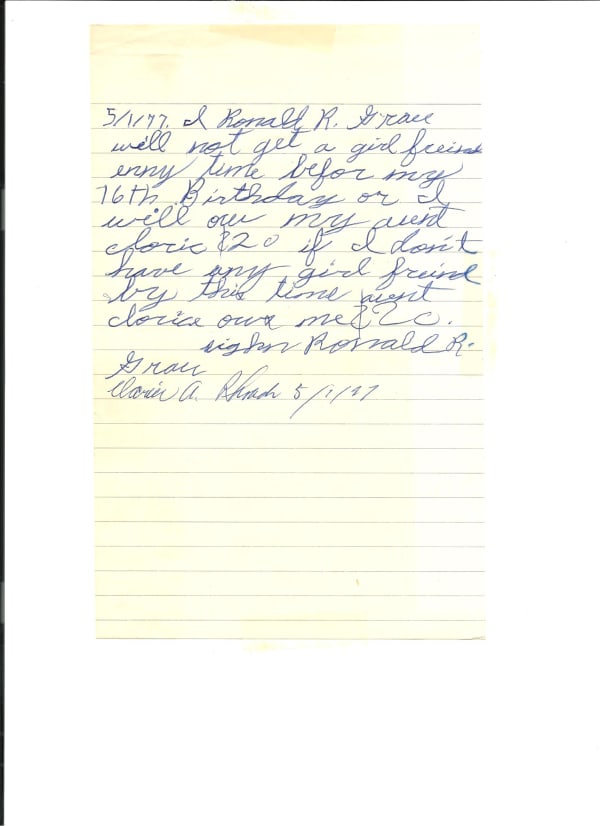 5/1/77. I Ronald R. Grau
will not get a girl freind
enny time befor my
16th Birthday or I
will ow my aunt
cloric $20 if I don't
have any girl freind
by this time aunt
clorice ows me $20.
Ronald R.
Grau
A. 5/1/77